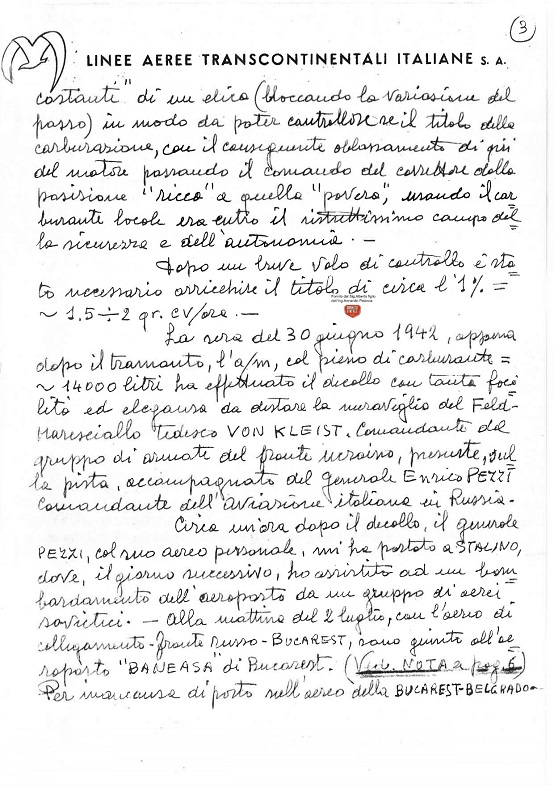 3
LINEE AEREE TRANSCONTINENTALI ITALIANE S. A.
costanti" di un elica (bloccando la variazione del
passo) in modo da poter controllare se il titolo della
carburazione, con il conseguente abbassamento di giri
del motore passando il comando del correttore dalla
posizione "ricca" a quella "povera", usando il car
burante locale era entro il ristrettissimo campo del
la sicurezza e dell'autonomia. -
Dopo un breve volo di controllo è sta
to necessario arricchire il titolo di circa l'1% =
~ 1.5÷2 gr. CV/ora. -
La sera del 30 giugno 1942, appena
dopo il tramonto, l'a/m, col pieno di carburante =
~ 14000 litri ha effettuato il decollo con tanta faci
lità ed eleganza da destare la meraviglia del Feld-
Maresciallo tedesco VON KLEIST. Comandante del
gruppo di armate del fronte ucraino, presente, sul
la pista, accompagnato dal generale Enrico PEZZI
Comandante dell'aviazione italiana in Russia.
Circa un'ora dopo il decollo, il generale
PEZZI, col suo aereo personale, mi ha portato a STALINO,
dove, il giorno successivo, ho assistito ad un bom
bardamento dell'aeroporto da un gruppo di aerei
sovietici. - Alla mattina del 2 luglio, con l'aereo di
collegamento-fronte russo-BUCAREST, sono giunto all'ae
roporto "BANEASA" di Bucarest. (Ved. NOTA a pag. 6)
Per mancanza di posto sull'aereo della BUCAREST-BELGRADO-